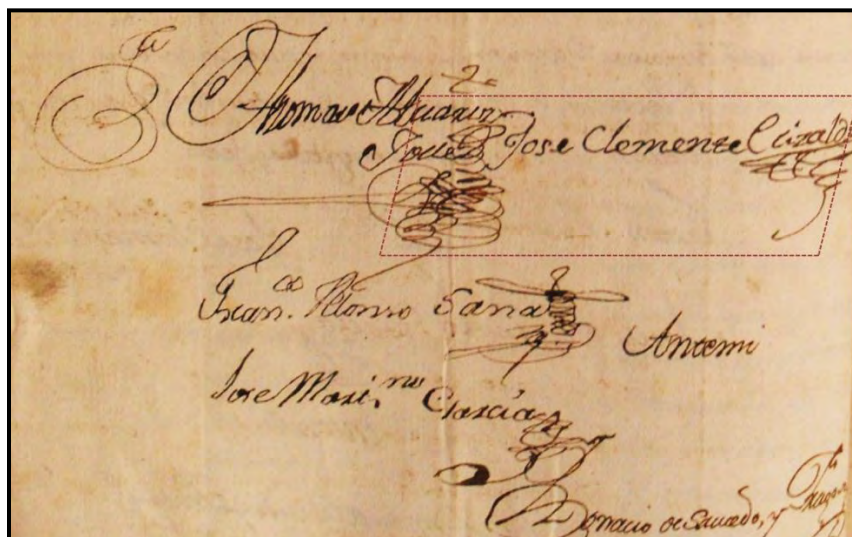 Thomas Alvarez
Jose Clemente Elizalde
Fran.co Alonso Sanz
Antemi
Jose Mari.no Garcia
Ygnacio de Saucedo, y